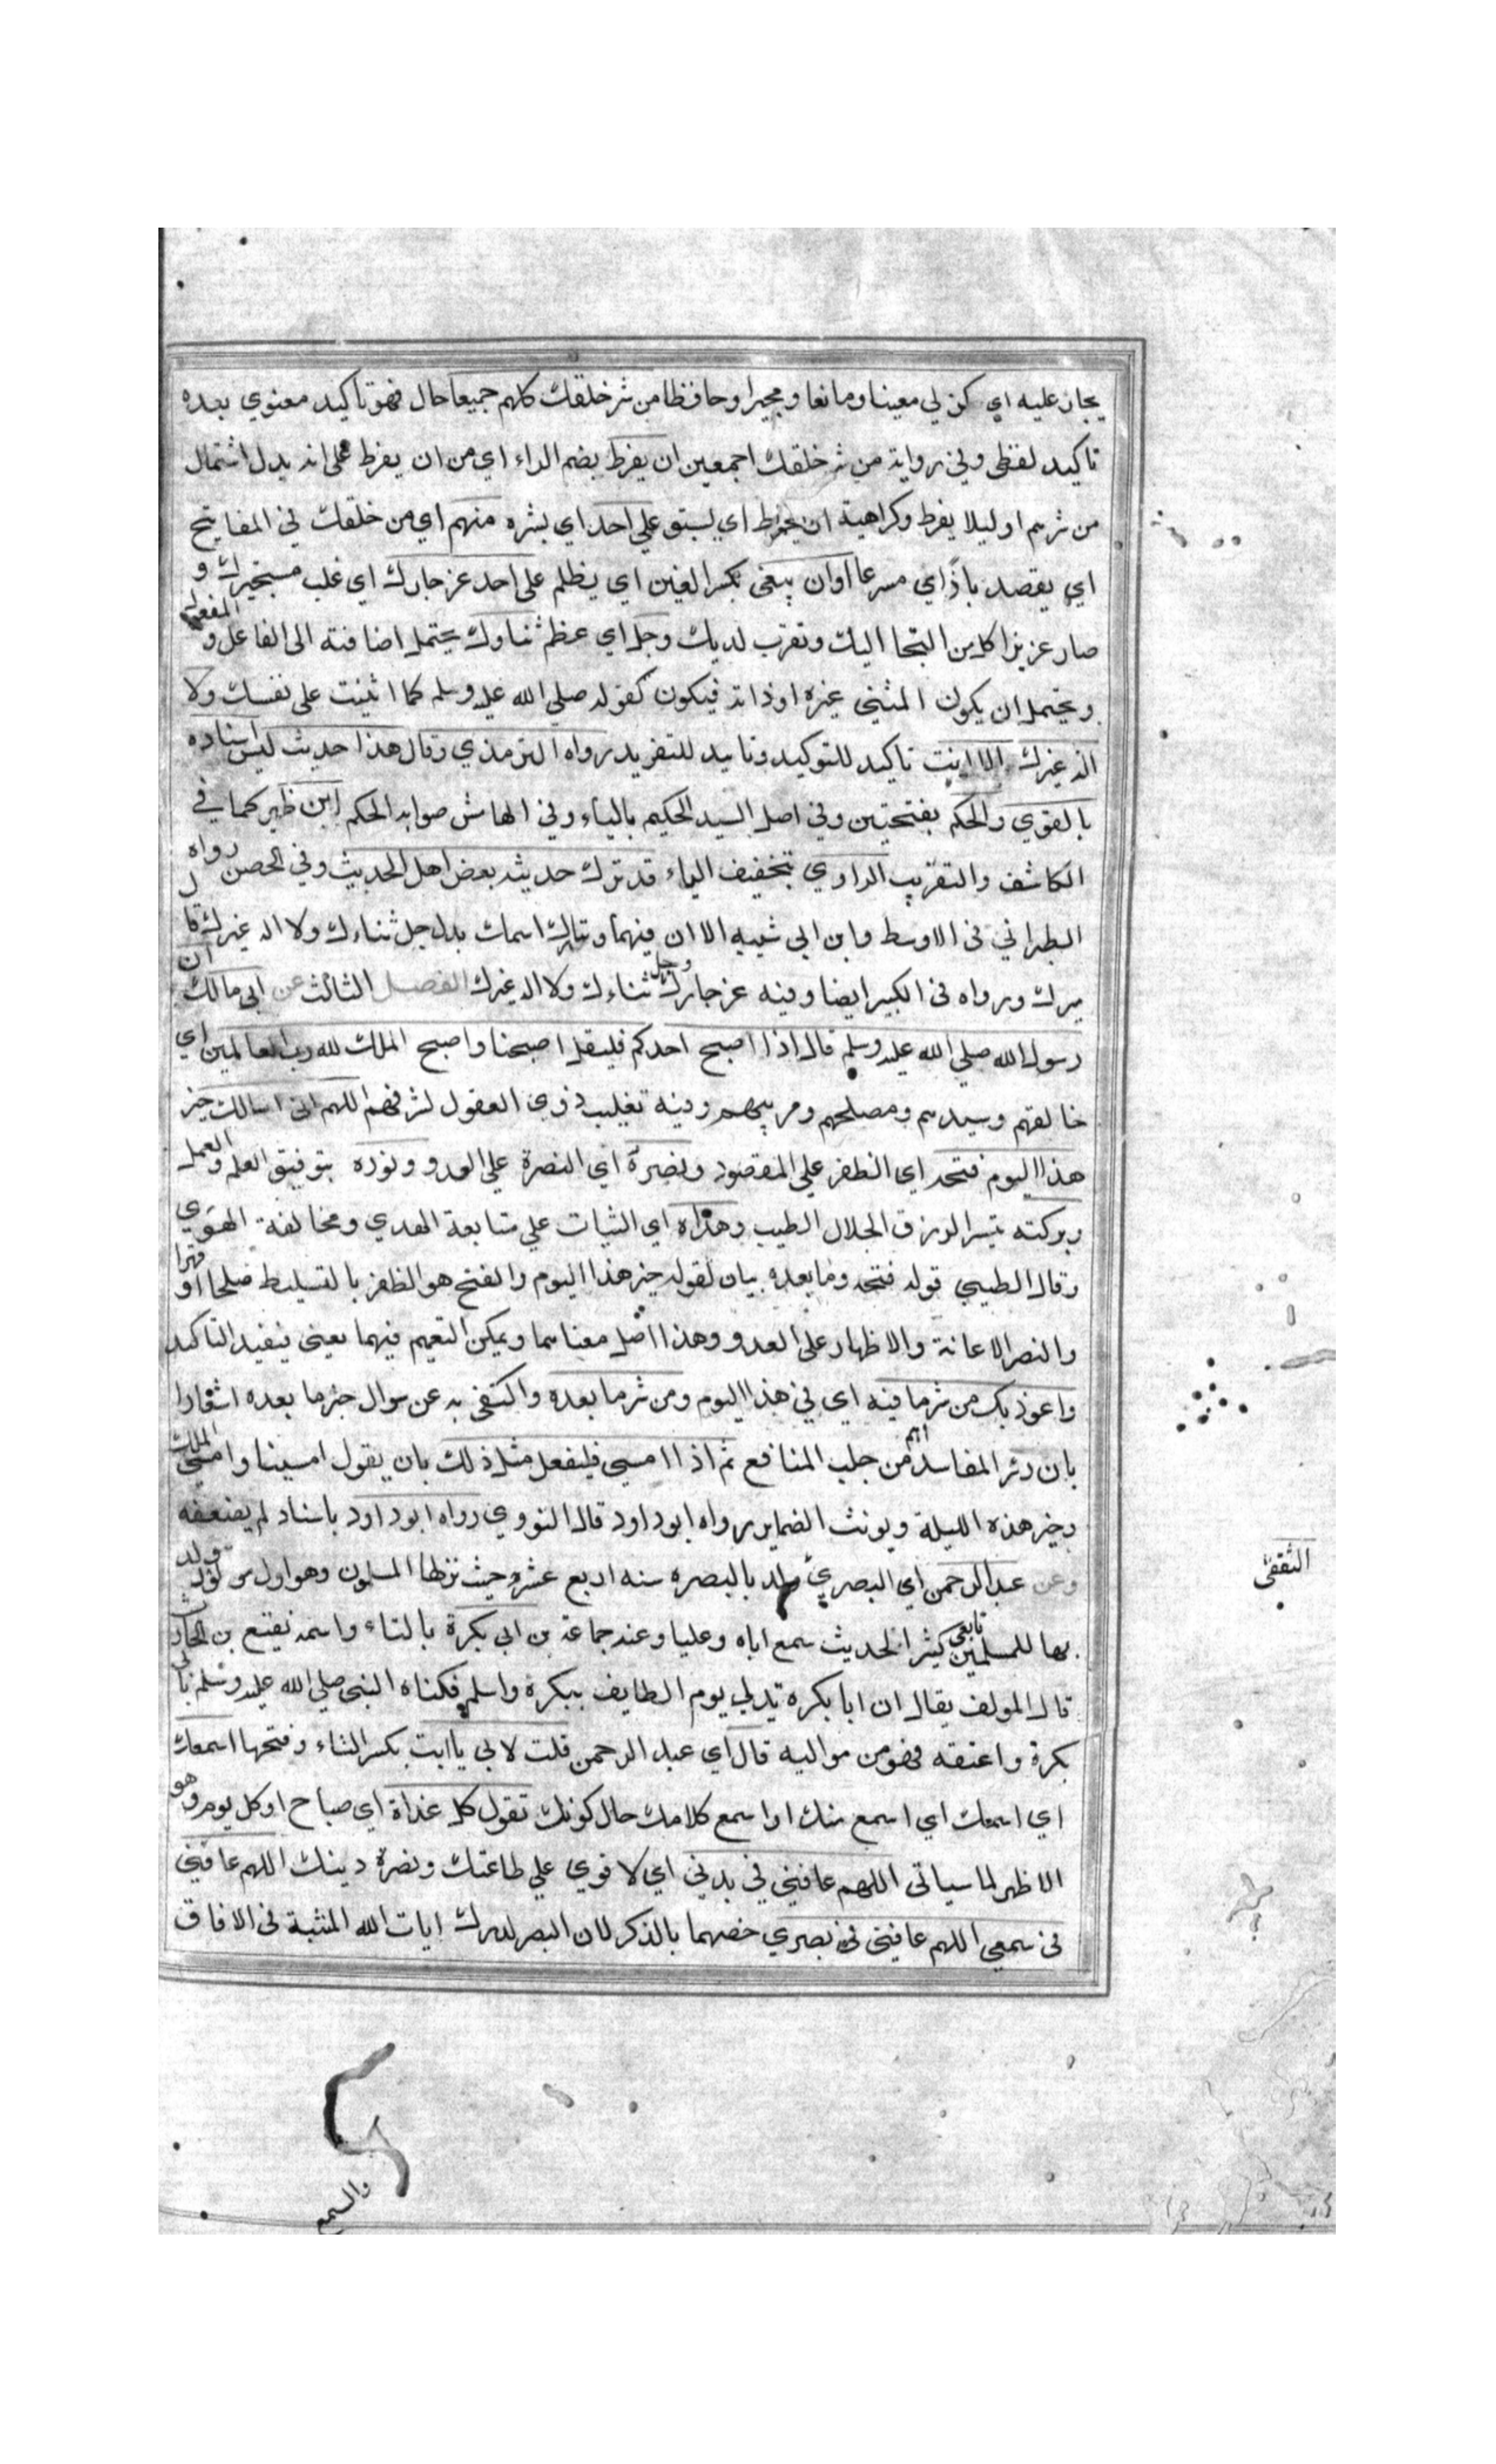 يجار عليه اي كن لي معينا ومانعا ومجيرا وحافظا من شر خلقك كلهم جميعا حال فهو تاكيد معنوي بعده
تاكيد لفظي وفي رواية من شر خلقك اجمعين ان يفرط بضم الراء اي من ان يفرط على انه بدل اشتمال
من شرهم او ليلا يفرط وكراهية ان يفرط اي يسبق علي احد اي بشره منهم اي من خلقك في المفاتيح
اي يقصد باذاي مسرعا او ان يبغى بكسر الغين اي يظلم على احد عز جارك اي غلب مستجيرك و
صار عزيزا كل من التجا اليك وتقرب لديك وجل اي عظم ثناوك يحتمل اضافته الى الفاعل و المفعول
ويحتمل ان يكون المثني غيره او ذاته فيكون كقوله صلي الله عليه وسلم كما اثنيت على نفسك ولا
اله غيرك الا انت تاكيد للتوكيد وتاييد للتفريد رواه الترمذي وقال هذا حديث ليس اسناده
بالقوي والحكم بفتحتين وفي اصل السيد الحكيم بالياء وفي الهامش صوابه الحكم ابن ظهير كما في
الكاشف والتقريب الراوي بتخفيف الياء قد ترك حديثه بعض اهل الحديث وفي الحصن رواه
الطبراني في الاوسط وابن ابي شيبه الا ان فيهما وتبارك اسمك بدل جل ثناءك ولا اله غيرك قال
ميرك ورواه في الكبير ايضا وفيه عز جارك وجل ثناءك ولا اله غيرك الفصل الثالث عن ابي مالك ان
رسول الله صلي الله عليه وسلم قال اذا اصبح احدكم فليقل اصبحنا واصبح الملك لله رب العالمين اي
خالقهم وسيدهم ومصلحهم ومربيهم وفيه تغليب ذوي العقول لشرفهم اللهم اني اسالك خير
هذا اليوم فتحه اي الظفر علي المقصود ونصرة اي النصرة علي العدو ونوره بتوفيق العلم والعمل
وبركته بتيسر الرزق الحلال الطيب وهداه اي الثبات علي متابعة الهدي ومخالفة الهوي
وقال الطيبي قوله فتحه وما بعده بيان لقوله خير هذا اليوم والفتح هو الظفر بالتسليط صلحا او قهرا
والنصر الاعانة والاظهار على العدو وهذا اصل معناهما ويمكن التعميم فيهما يعني فيفيد التاكيد
واعوذ بك من شر ما فيه اي في هذا اليوم ومن شر ما بعده واكتفي به عن سوال خير ما بعده اشعارا
بان درء المفاسد اهم من جلب المنافع ثم اذا امسي فليفعل مثل ذلك بان يقول امسينا وامسي الملك
وخير هذه الليلة ويونث الضماير رواه ابو داود قال النووي رواه ابو داود باسناد لم يضعفه
وعن عبد الرحمن اي البصري ولد بالبصره سنه اربع عشر حيث نزلها المسلمون وهو اول مولود ولد
بها للمسلمين تابعي كثير الحديث سمع اباه وعليا وعنه جماعة بن ابي بكرة بالتاء واسمه نفيع بن الحارث
قال المولف يقال ان ابا بكره تدلي يوم الطايف ببكرة واسلم فكناه النبي صلي الله عليه وسلم بابي
بكرة واعتقه فهو من مواليه قال اي عبد الرحمن قلت لابي يا ابت بكسر التاء وفتحها اسمعك
اي اسمعك اي اسمع منك او اسمع كلامك حال كونك تقول كل غداة اي صباح او كل يوم وهو
الاظهر لما سياتي اللهم عافني في بدني اي لا قوي علي طاعتك ونصرة دينك اللهم عافني
في سمعي اللهم عافني في بصري خصهما بالذكر لان البصر لدرك ايات الله المثبتة في الافاق
الثقفي
والسمع